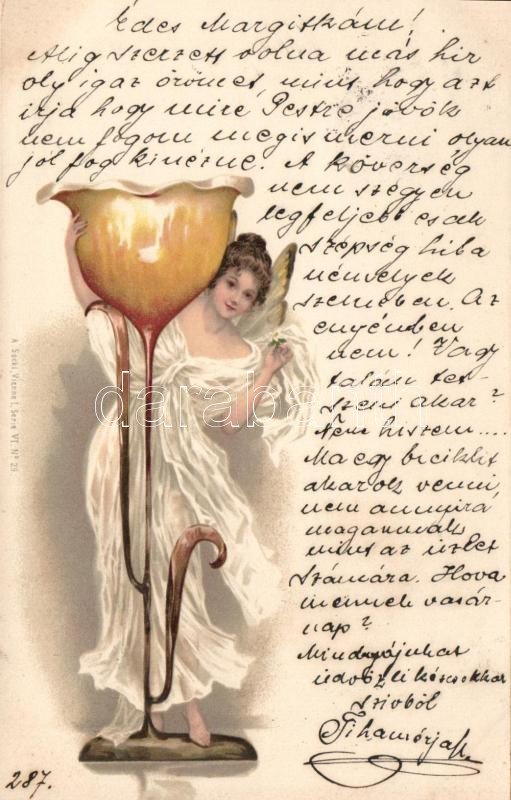 Édes Margitkám!
Alig szerzett volna más hir
oly igaz örömet, mint hogy azt
irja hogy mire Pestre jövök
nem fogom megismerni olyan
jól fog kinézne. A kövérség
nem szégyen
legfeljebb csak
szépség hiba
némelyek
szemeiben. Az
enyémben
nem! Vagy
talán tet-
szeni akar?
Nem hiszem....
Ma egy biciklit
akarok venni,
nem annyira
magamnak
mint az üzlet
számára. Hova
mennek vasár-
nap?
Mindnyájukat
üdvözli
szivból
Tihamérjak
287.
A. Sockl, Vienne I, Serie VI. Nº 29
darabanth.com